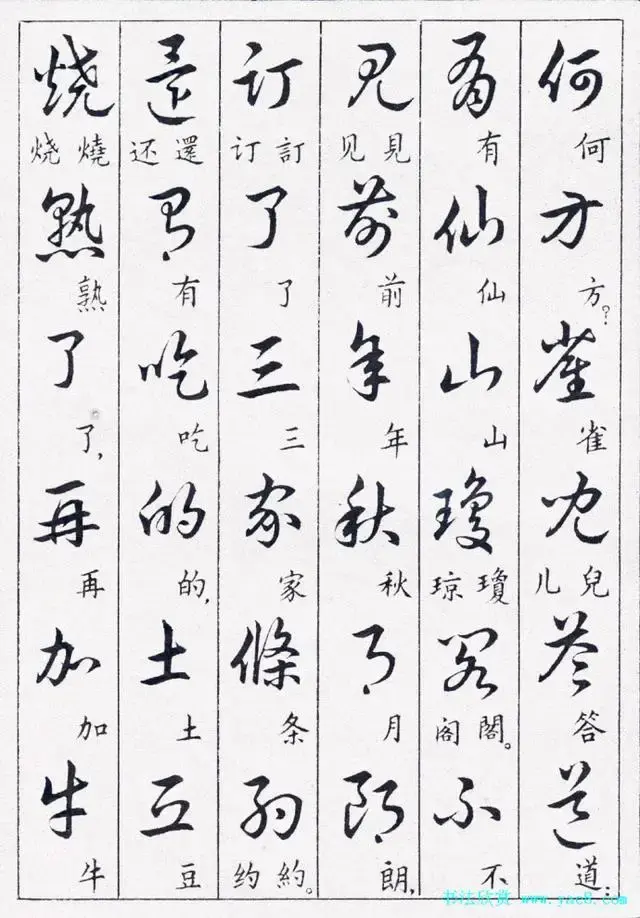 何方雀兒答道
何方?雀儿兒答道:
有仙山瓊閣不
有仙山琼瓊阁閣。不
見前年秋月朗
见見前年秋月朗,
訂了三家條約
订訂了三家条约約。
還有吃的土豆
还還有吃的,土豆
燒熟了再加牛
烧燒熟了,再加牛
书法欣赏 www.yac8.com